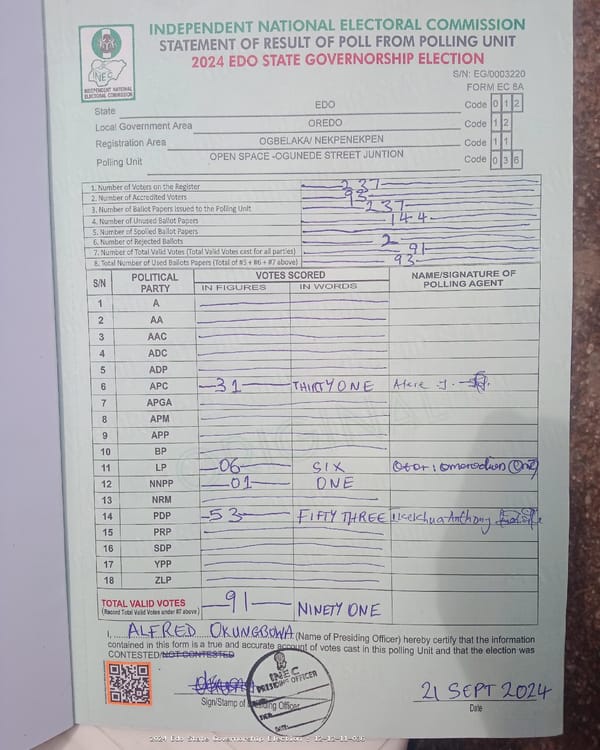 INDEPENDENT NATIONAL ELECTORAL COMMISSION
STATEMENT OF RESULT OF POLL FROM POLLING UNIT
2024 EDO STATE GOVERNORSHIP ELECTION
INEC
INDEPENDENT NATIONAL ELECTORAL COMMISSION
S/N: EG/0003220
FORM EC 8A
State EDO Code 0 1 2
Local Government Area OREDO Code 1 2
Registration Area OGBELAKA/ NEKPENEKPEN Code 1 1
Polling Unit OPEN SPACE -OGUNEDE STREET JUNTION Code 0 3 6
1. Number of Voters on the Register 237
2. Number of Accredited Voters 93
3. Number of Ballot Papers Issued to the Polling Unit 237
4. Number of Unused Ballot Papers 144
5. Number of Spoiled Ballot Papers
6. Number of Rejected Ballots 2
7. Number of Total Valid Votes (Total Valid Votes cast for all parties) 91
8. Total Number of Used Ballots Papers (Total of #5 + #6 + #7 above) 93
S/N POLITICAL PARTY VOTES SCORED NAME/SIGNATURE OF POLLING AGENT
IN FIGURES IN WORDS
1 A
2 AA
3 AAC
4 ADC
5 ADP
6 APC 31 THIRTY ONE
7 APGA
8 APM
9 APP
10 BP
11 LP 06 SIX
12 NNPP 01 ONE
13 NRM
14 PDP 53 FIFTY THREE Anthony
15 PRP
16 SDP
17 YPP
18 ZLP
TOTAL VALID VOTES 91 NINETY ONE
(Record Total Valid Votes under #7 above)
I, ALFRED OKUNGBOWA (Name of Presiding Officer) hereby certify that the information
contained in this form is a true and accurate account of votes cast in this polling Unit and that the election was
CONTESTED/NOT CONTESTED
INEC
PRESIDING OFFICER
Sign/Stamp of Presiding Officer
21 SEPT 2024
Date
2024 Edo State Governorship Election - 12-12-11-036